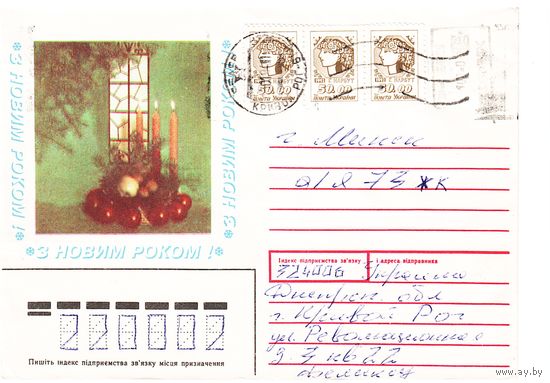 З НОВИМ РОКОМ !
З НОВИМ РОКОМ !
З НОВИМ РОКОМ !
50.00 50.00 50.00
Пошта України Пошта України Пошта України
г. Минск
а/я 73 жк
Індекс підприємства зв'язку і адреса відправника
324006 Украина
Днепроп обл
г. Кривой Рог
ул. Революционная
д. 7 кв 22
220002
Пишіть індекс підприємства зв'язку місця призначення
www.ay.by